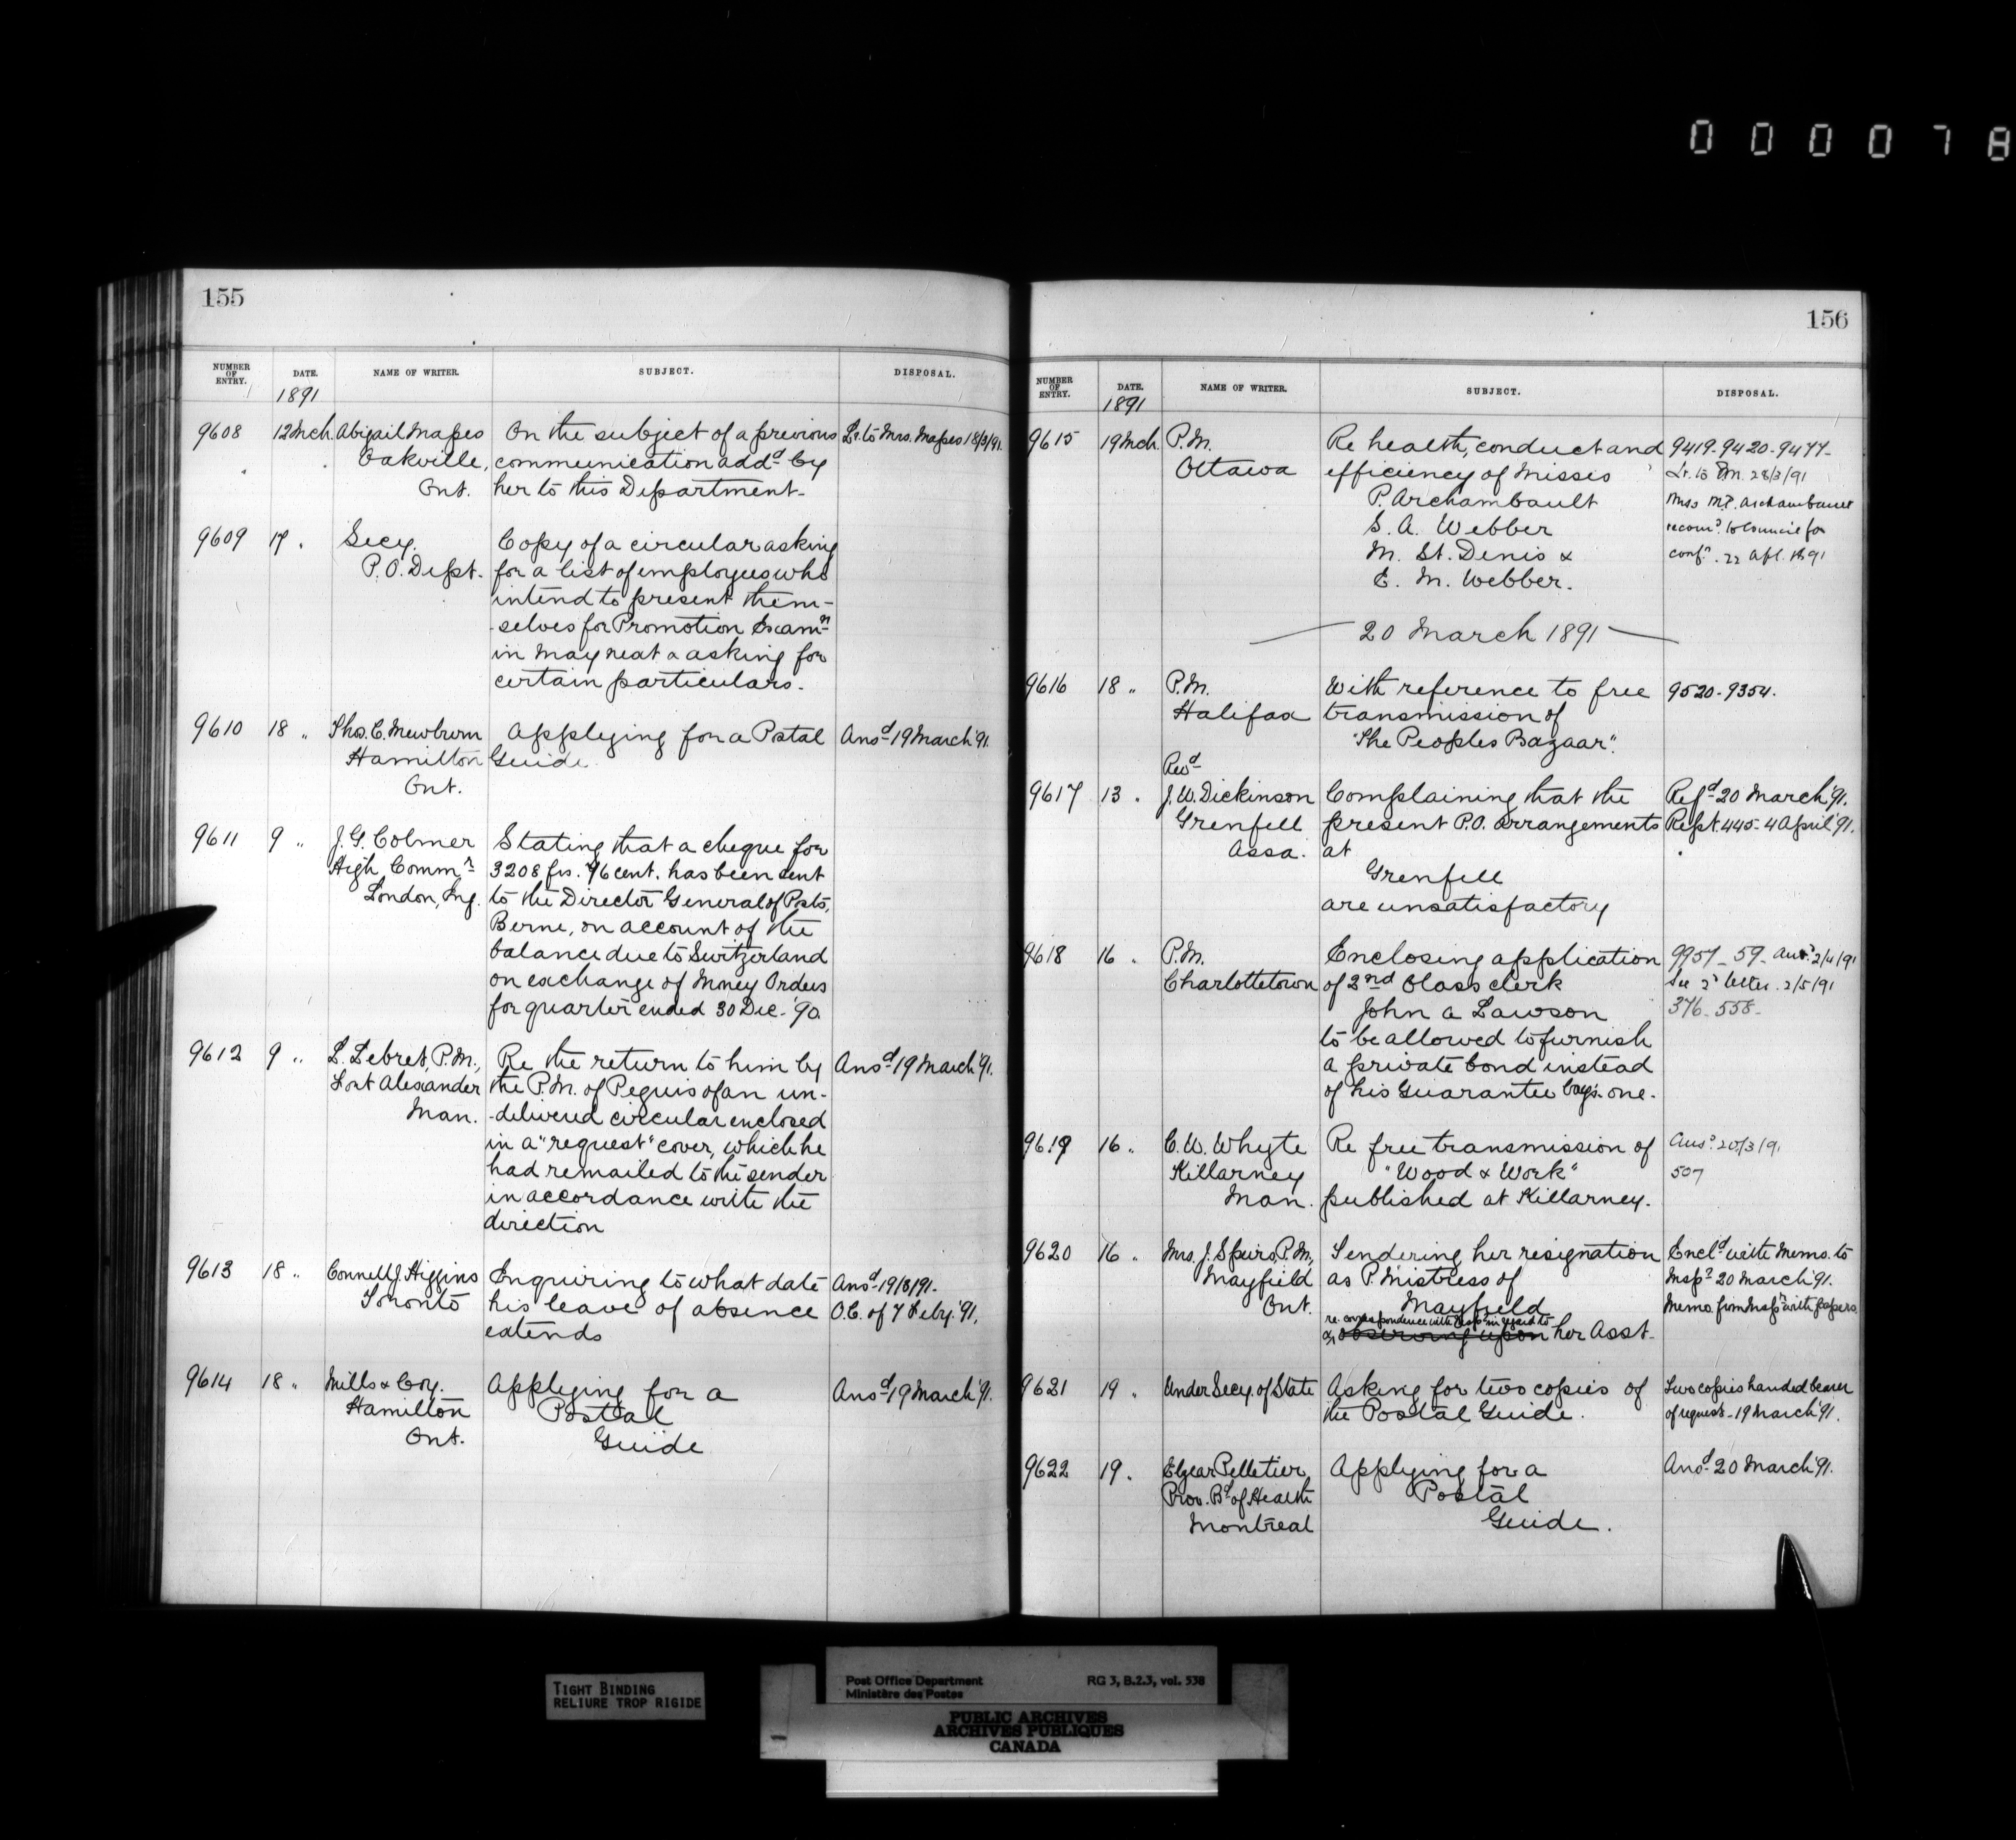 000078
155
NUMBER OF ENTRY. DATE. NAME OF WRITER. SUBJECT. DISPOSAL.
1891
9608 12 Mch. Abigail Mapes On the subject of a previous Lr. to Mrs. Mapes 18/3/91.
Oakville, communication addd. by
Ont. her to this Department.
9609 17 " Secy. Copy of a circular asking
P.O. Dept. for a list of employees who
intend to present them-
-selves for Promotion Examn.
in May next & asking for
certain particulars.
9610 18 " Thos. C. Mewburn Applying for a Postal Ansd. 19 March '91.
Hamilton Guide
Ont.
9611 9 " J. G. Colmer Stating that a cheque for
High Commr. 3208 frs. 76 cent. has been sent
London, Eng. to the Director General of Posts,
Berne, on account of the
balance due to Switzerland
on exchange of Money Orders
for quarter ended 30 Dec. '90
9612 9 " L. Lebret, P.M., Re the return to him by Ansd. 19 March '91.
Fort Alexander the P.M. of Peguis of an un-
Man. -delivered circular enclosed
in a "request" cover, which he
had remailed to the sender
in accordance with the
direction
9613 18 " Connell J. Higgins Enquiring to what date Ansd. 19/3/91.
Toronto his leave of absence O.C. of 7 Feby. '91.
extends
9614 18 " Mills & Coy. Applying for a Ansd. 19 March '91.
Hamilton Postal
Ont. Guide
156
NUMBER OF ENTRY. DATE. NAME OF WRITER. SUBJECT. DISPOSAL.
1891
9615 19 Mch. P.M. Re health, conduct and 9419-9420-9477-
Ottawa efficiency of Misses Lr. to P.M. 28/3/91
P. Archambault Miss M.P. Archambault
S. A. Webber recomd. to Council for
M. St. Denis & confn. 22 Apl. 1891
E. M. Webber.
20 March 1891
9616 18 " P.M. With reference to free 9520-9354.
Halifax transmission of
"The Peoples Bazaar".
Revd.
9617 13 " J. W. Dickinson Complaining that the Refd. 20 March '91.
Grenfell present P.O. arrangements Rept. 445-4 April '91.
Assa. at
Grenfell
are unsatisfactory
9618 16 " P.M. Enclosing application 9957-59- Ansd. 2/4/91
Charlottetown of 2nd Class clerk See 2d. letter. 2/5/91
John A Lawson 376-558-
to be allowed to furnish
a private bond instead
of his Guarantee Coy's. one.
9619 16 " C. W. Whyte Re free transmission of Ansd. 20/3/91
Killarney "Wood & Work" 507
Man. published at Killarney.
9620 16 " Mrs. J. Speirs, P.M., Tendering her resignation Encld. with Memo. to
Mayfield as P. Mistress of Inspr. 20 March '91.
Ont. Mayfield Memo. from Inspr. with papers.
re correspondence with Inspr. in regard to
& observing upon her Asst.
9621 19 " Under Secy. of State Asking for two copies of Two copies handed bearer
the Postal Guide. of request-19 March '91.
9622 19 " Elzear Pelletier, Applying for a Ansd. 20 March '91.
Prov. Bd. of Health Postal
Montreal Guide.
TIGHT BINDING
RELIURE TROP RIGIDE
Post Office Department RG 3, B.2.3, vol. 538
Ministère des Postes
PUBLIC ARCHIVES
ARCHIVES PUBLIQUES
CANADA